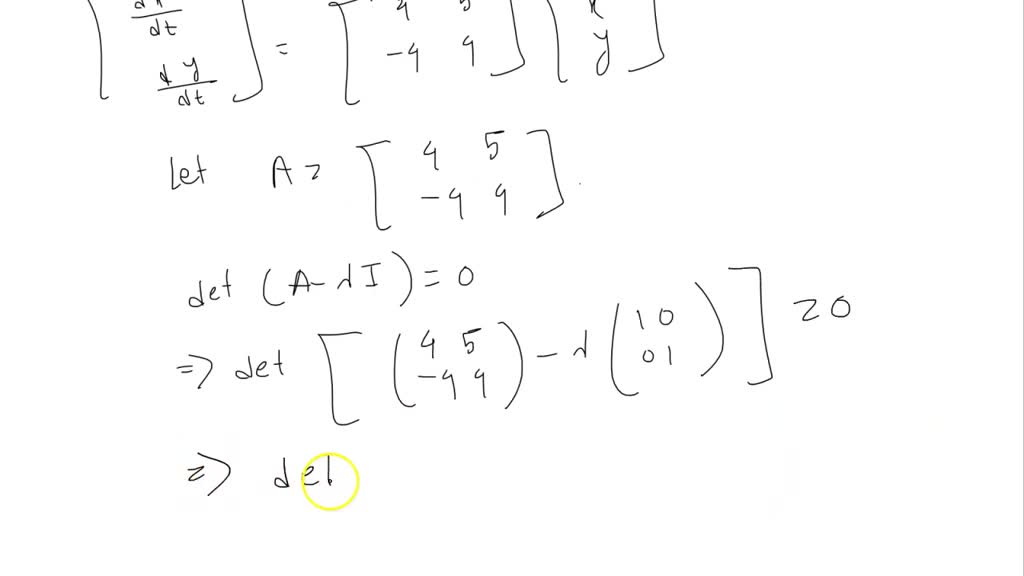 [dx/dt dy/dt] = [4 5 -4 4] [x y]
Let A = [4 5 -4 4].
det (A-λI) = 0
=> det [(4 5 -4 4) - λ (1 0 0 1)] = 0
=> det